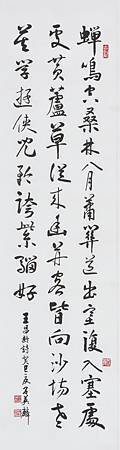 蟬鳴空桑林八月蕭關道出塞復入塞處
處黃蘆草從來幽并客皆向沙場老
莫學遊俠兒矜誇紫騮好
王昌齡詩癸巳